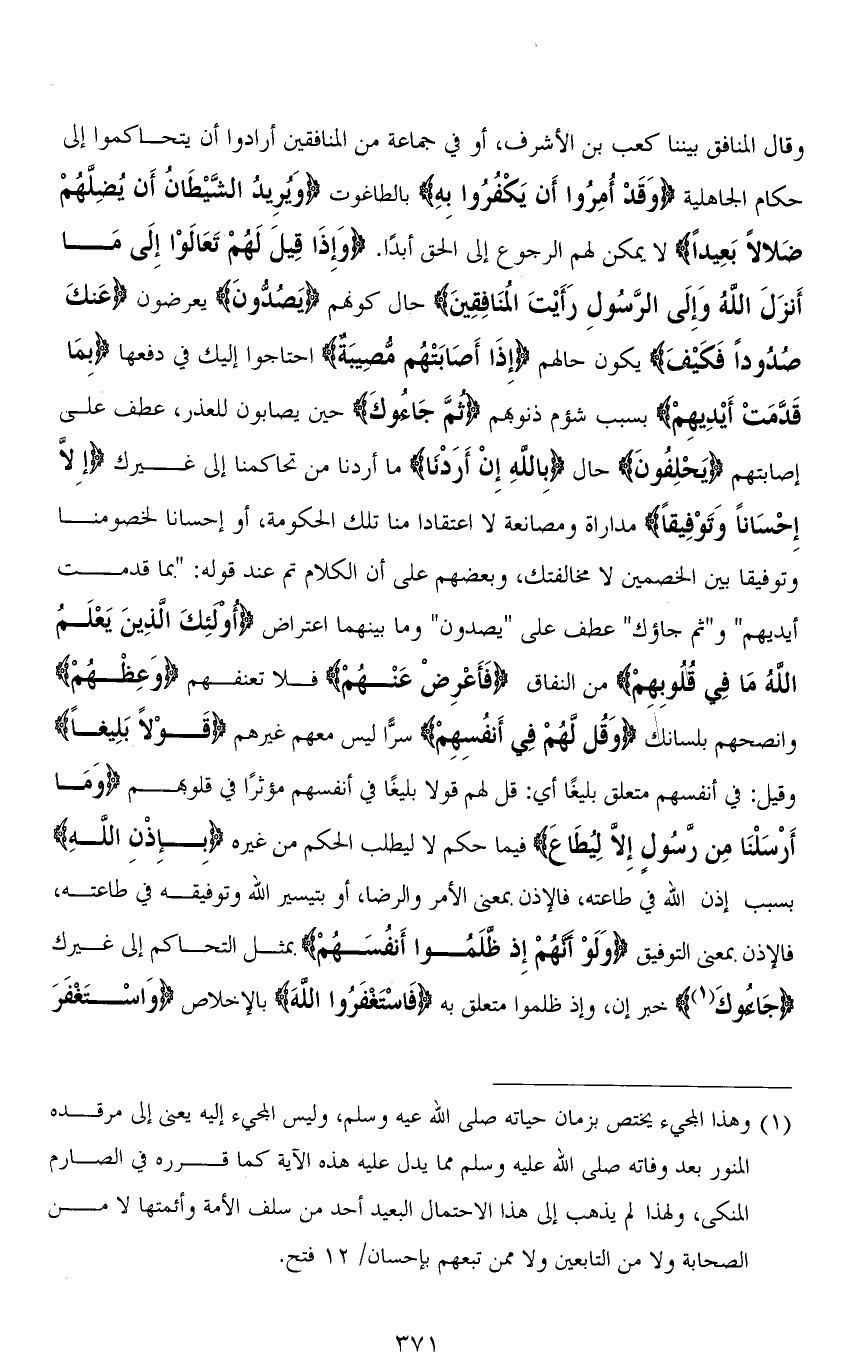 وقال المنافق بيننا كعب بن الأشرف، أو في جماعة من المنافقين أرادوا أن يتحـــاكموا إلى
حكام الجاهلية ﴿وَقَدْ أُمِرُوا أَن يَكْفُرُوا بِهِ﴾ بالطاغوت ﴿وَيُرِيدُ الشَّيْطَانُ أَن يُضِلَّهُمْ
ضَلالاً بَعِيداً﴾ لا يمكن لهم الرجوع إلى الحق أبدًا. ﴿وَإِذَا قِيلَ لَهُمْ تَعَالَوْا إِلَى مَـــا
أَنزَلَ اللَّهُ وَإِلَى الرَّسُولِ رَأَيْتَ الْمُنَافِقِينَ﴾ حال كونهم ﴿يَصُدُّونَ﴾ يعرضون ﴿عَنكَ
صُدُوداً فَكَيْفَ﴾ يكون حالهم ﴿إِذَا أَصَابَتْهُم مُّصِيبَةٌ﴾ احتاجوا إليك في دفعها ﴿بِمَا
قَدَّمَتْ أَيْدِيهِمْ﴾ بسبب شؤم ذنوبهم ﴿ثُمَّ جَاءُوكَ﴾ حين يصابون للعذر، عطف علــى
إصابتهم ﴿يَحْلِفُونَ﴾ حال ﴿بِاللَّهِ إِنْ أَرَدْنَا﴾ ما أردنا من تحاكمنا إلى غـــــيرك ﴿إِلاَّ
إِحْسَاناً وَتَوْفِيقاً﴾ مداراة ومصانعة لا اعتقادا منا تلك الحكومة، أو إحسانا لخصومنـــا
وتوفيقا بين الخصمين لا مخالفتك، وبعضهم على أن الكلام تم عند قوله: "بما قدمـــت
أيديهم" و"ثم جاؤك" عطف على "يصدون" وما بينهما اعتراض ﴿أُوْلَئِكَ الَّذِينَ يَعْلَــمُ
اللَّهُ مَا فِي قُلُوبِهِمْ﴾ من النفاق ﴿فَأَعْرِضْ عَنْـــهُمْ﴾ فـــلا تعنفـــهم ﴿وَعِظْـــهُمْ﴾
وانصحهم بلسانك ﴿وَقُل لَّهُمْ فِي أَنفُسِهِمْ﴾ سرًّا ليس معهم غيرهم ﴿قَـــوْلاً بَلِيغـــاً﴾
وقيل: في أنفسهم متعلق بليغًا أي: قل لهم قولا بليغًا في أنفسهم مؤثرًا في قلوبهـــــم ﴿وَمَـــا
أَرْسَلْنَا مِن رَّسُولٍ إِلاَّ لِيُطَاعَ﴾ فيما حكم لا ليطلب الحكم من غيره ﴿بِـــإِذْنِ اللَّـــهِ﴾
بسبب إذن الله في طاعته، فالإذن بمعنى الأمر والرضا، أو بتيسير الله وتوفيقـــه في طاعتـــه،
فالإذن بمعنى التوفيق ﴿وَلَوْ أَنَّهُمْ إِذ ظَّلَمُـــوا أَنفُسَـــهُمْ﴾ بمثـــل التحـــاكم إلى غـــيرك
﴿جَاءُوكَ(١)﴾ خبر إن، وإذ ظلموا متعلق به ﴿فَاسْتَغْفَرُوا اللَّهَ﴾ بالإخلاص ﴿وَاسْـــتَغْفَرَ
(١) وهذا المجيء يختص بزمان حياته صلى الله عيه وسلم، وليس المجيء إليه يعنى إلى مرقـــده
المنور بعد وفاته صلى الله عليه وسلم مما يدل عليه هذه الآية كما قـــــرره في الصـــارم
المنكى، ولهذا لم يذهب إلى هذا الاحتمال البعيد أحد من سلف الأمة وأئمتها لا مـــن
الصحابة ولا من التابعين ولا ممن تبعهم بإحسان/ ١٢ فتح.
٣٧١